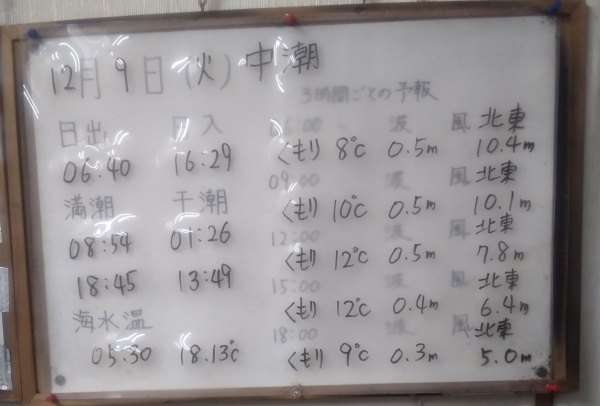 12月9日(火)中潮
3時間ごとの予報
日出 日入
06:40 16:29
満潮 干潮
08:54 01:26
18:45 13:49
海水温
05:30 18.13℃
06:00 波 風 北東
くもり 8℃ 0.5m 10.4m
09:00 波 風 北東
くもり 10℃ 0.5m 10.1m
12:00 波 風 北東
くもり 12℃ 0.5m 7.8m
15:00 波 風 北東
くもり 12℃ 0.4m 6.4m
18:00 波 風 北東
くもり 9℃ 0.3m 5.0m